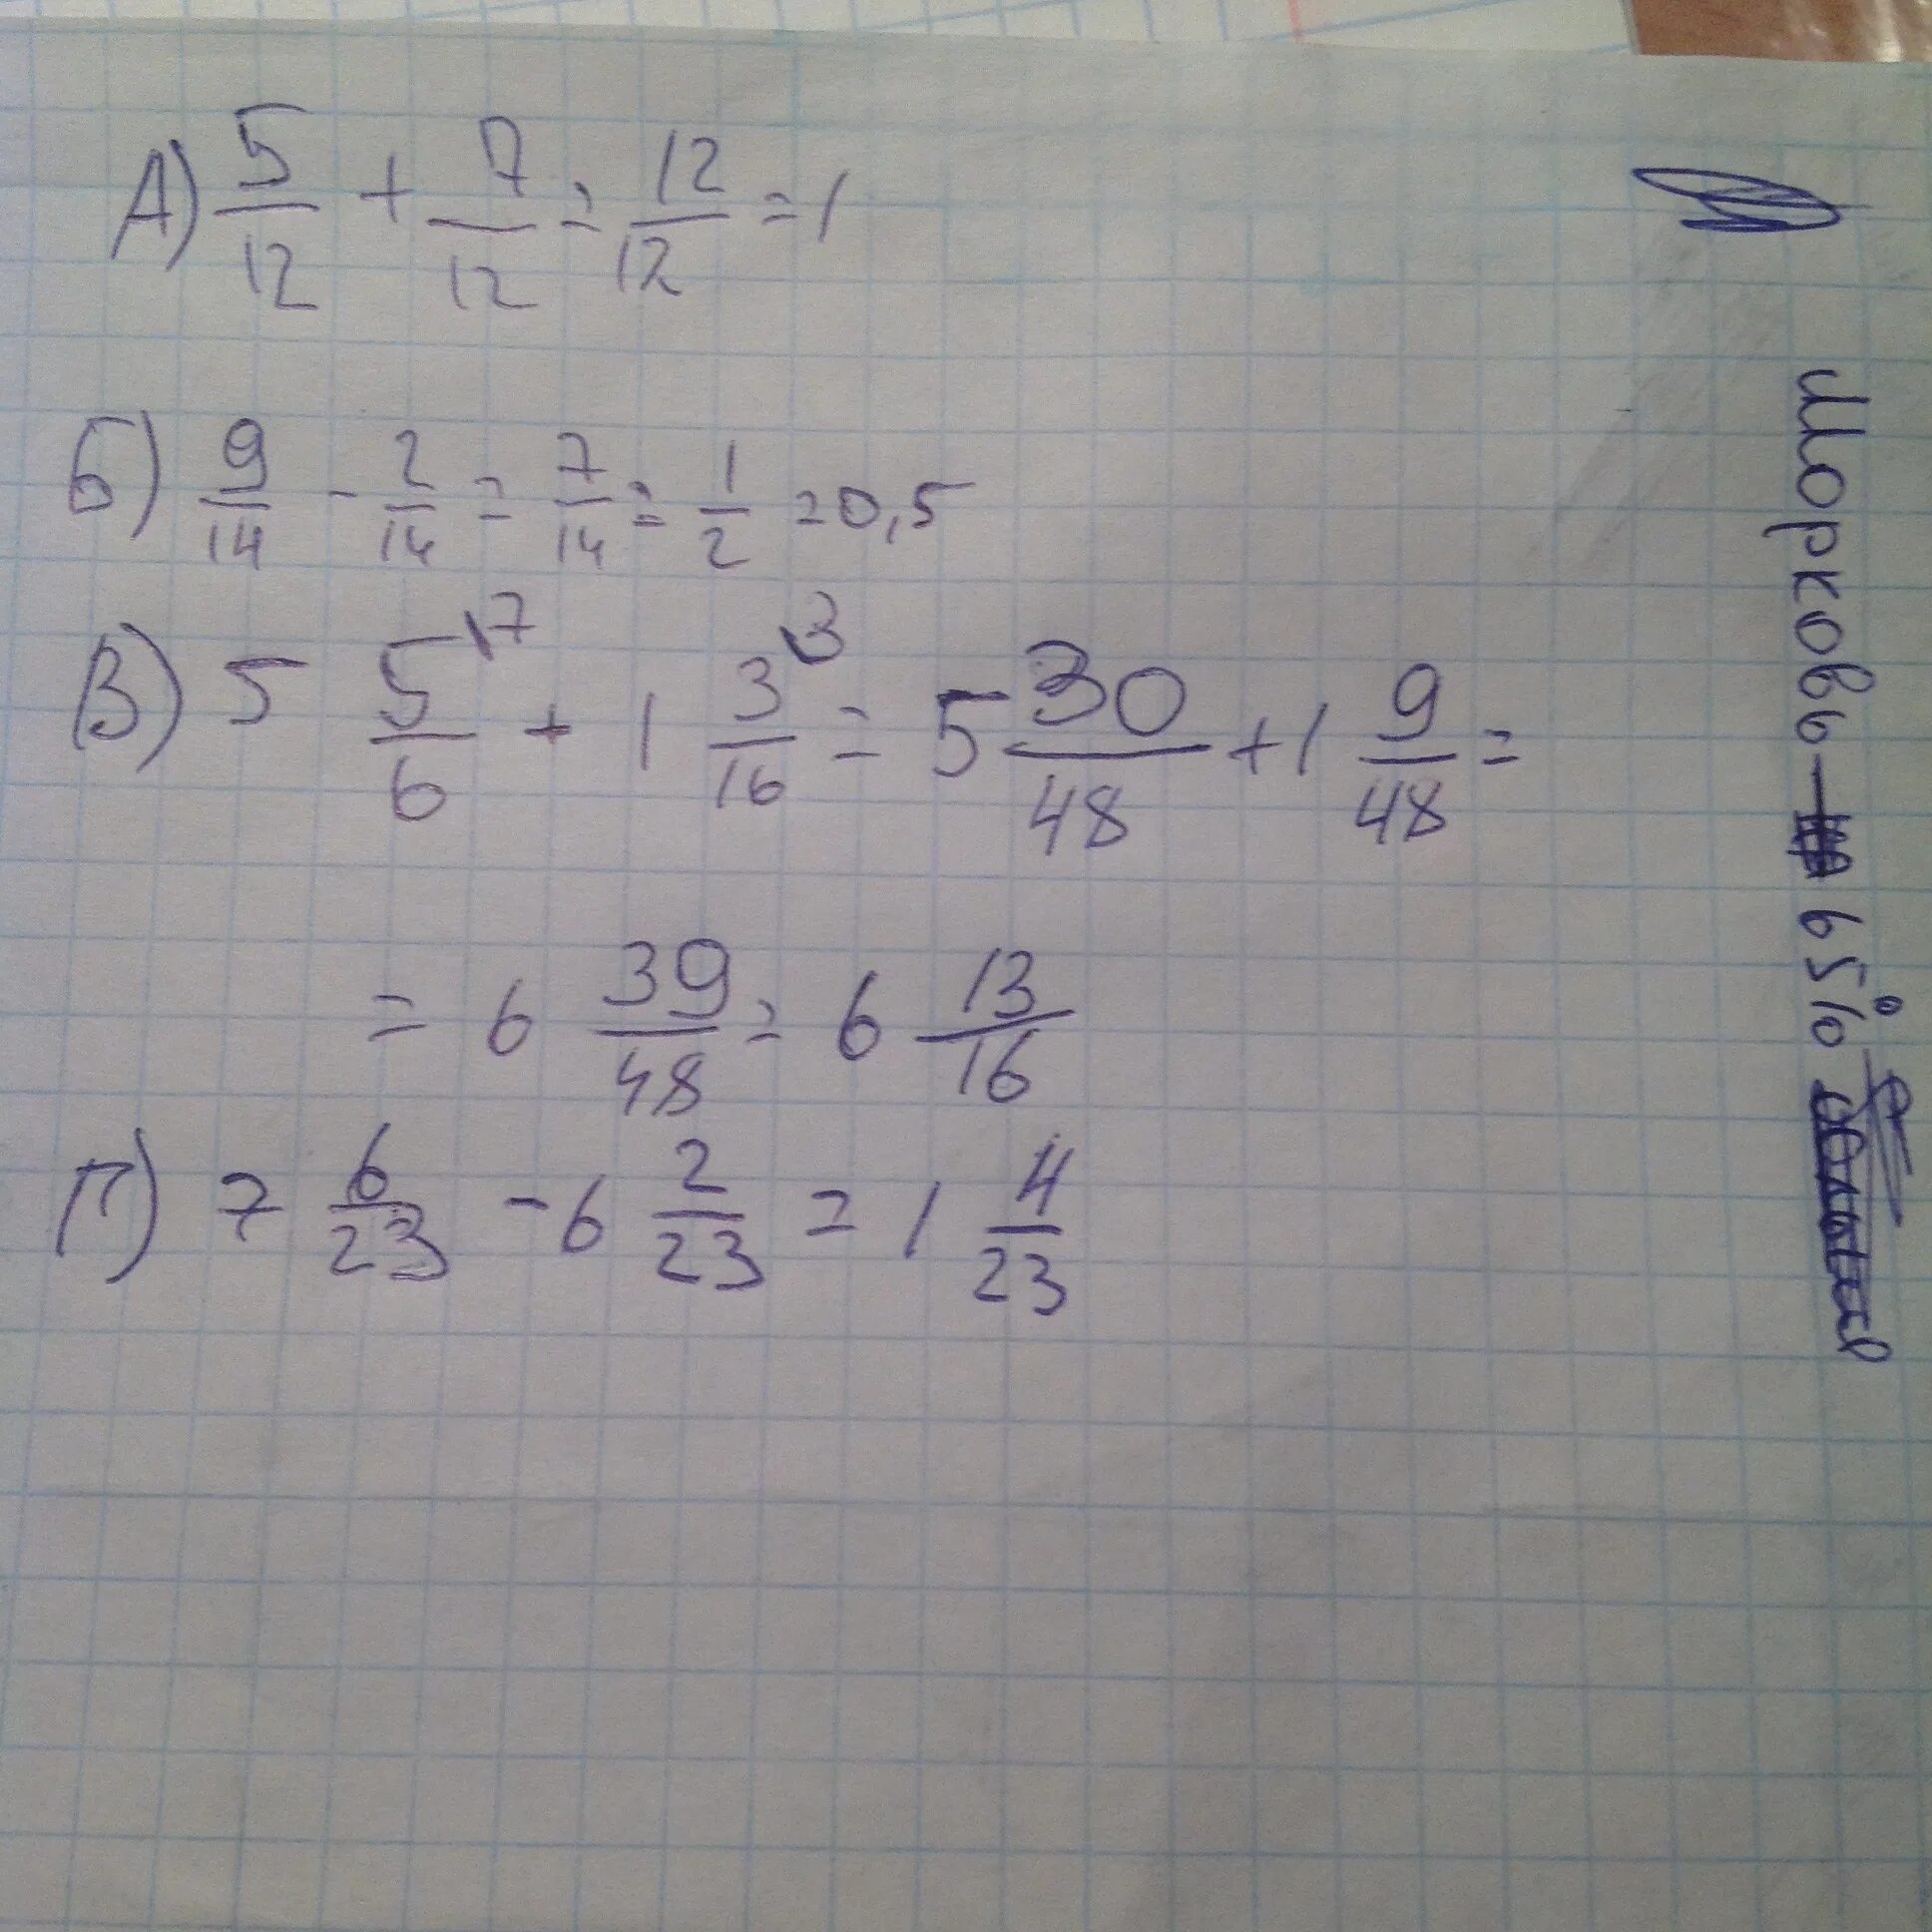 А) 5/12 + 7/12 = 12/12 = 1
Б) 9/14 - 2/14 = 7/14 = 1/2 = 0,5
В) 5 5/6 \7 + 1 3/16 \3 = 5 30/48 + 1 9/48 =
= 6 39/48 = 6 13/16
Г) 7 6/23 - 6 2/23 = 1 4/23
Морковь 65%